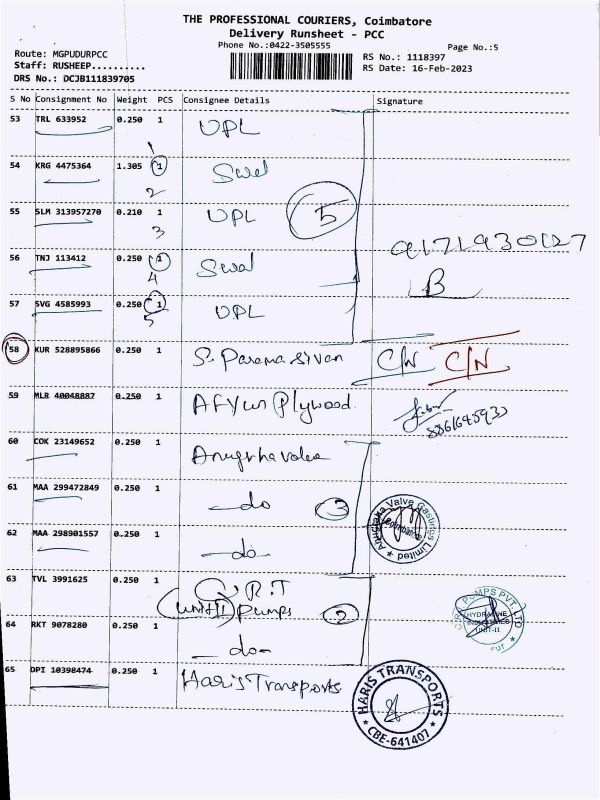 THE PROFESSIONAL COURIERS, Coimbatore
Delivery Runsheet - PCC
Phone No.:0422-3505555
Page No.:5
Route: MGPUDURPCC
Staff: RUSHEEP..........
DRS No.: DCJB111839705
RS No.: 1118397
RS Date: 16-Feb-2023
S No Consignment No Weight PCS Consignee Details Signature
53 TRL 633952 0.250 1 UPL
1
54 KRG 4475364 1.305 1 Swal
2
55 SLM 313957270 0.210 1 UPL 5
3
56 TNJ 113412 0.250 1 Swal
4
B
57 SVG 4585993 0.250 1 UPL
5
58 KUR 528895866 0.250 1 S. Paramasivan C/N C/N
59 MLR 40048887 0.250 1 Plywood
60 COK 23149652 0.250 1
61 MAA 299472849 0.250 1 -do 3
Anugraha Valve Castings Limited
Coimbatore
62 MAA 298901557 0.250 1 -do-
63 TVL 3991625 0.250 1 R.T
(Unit II) Pumps 2
PUMPS PVT. LTD
UNIT-II
64 RKT 9078280 0.250 1 -do-
65 DPI 10398474 0.250 1 Haris Transports
HARIS TRANSPORTS
CBE-641407